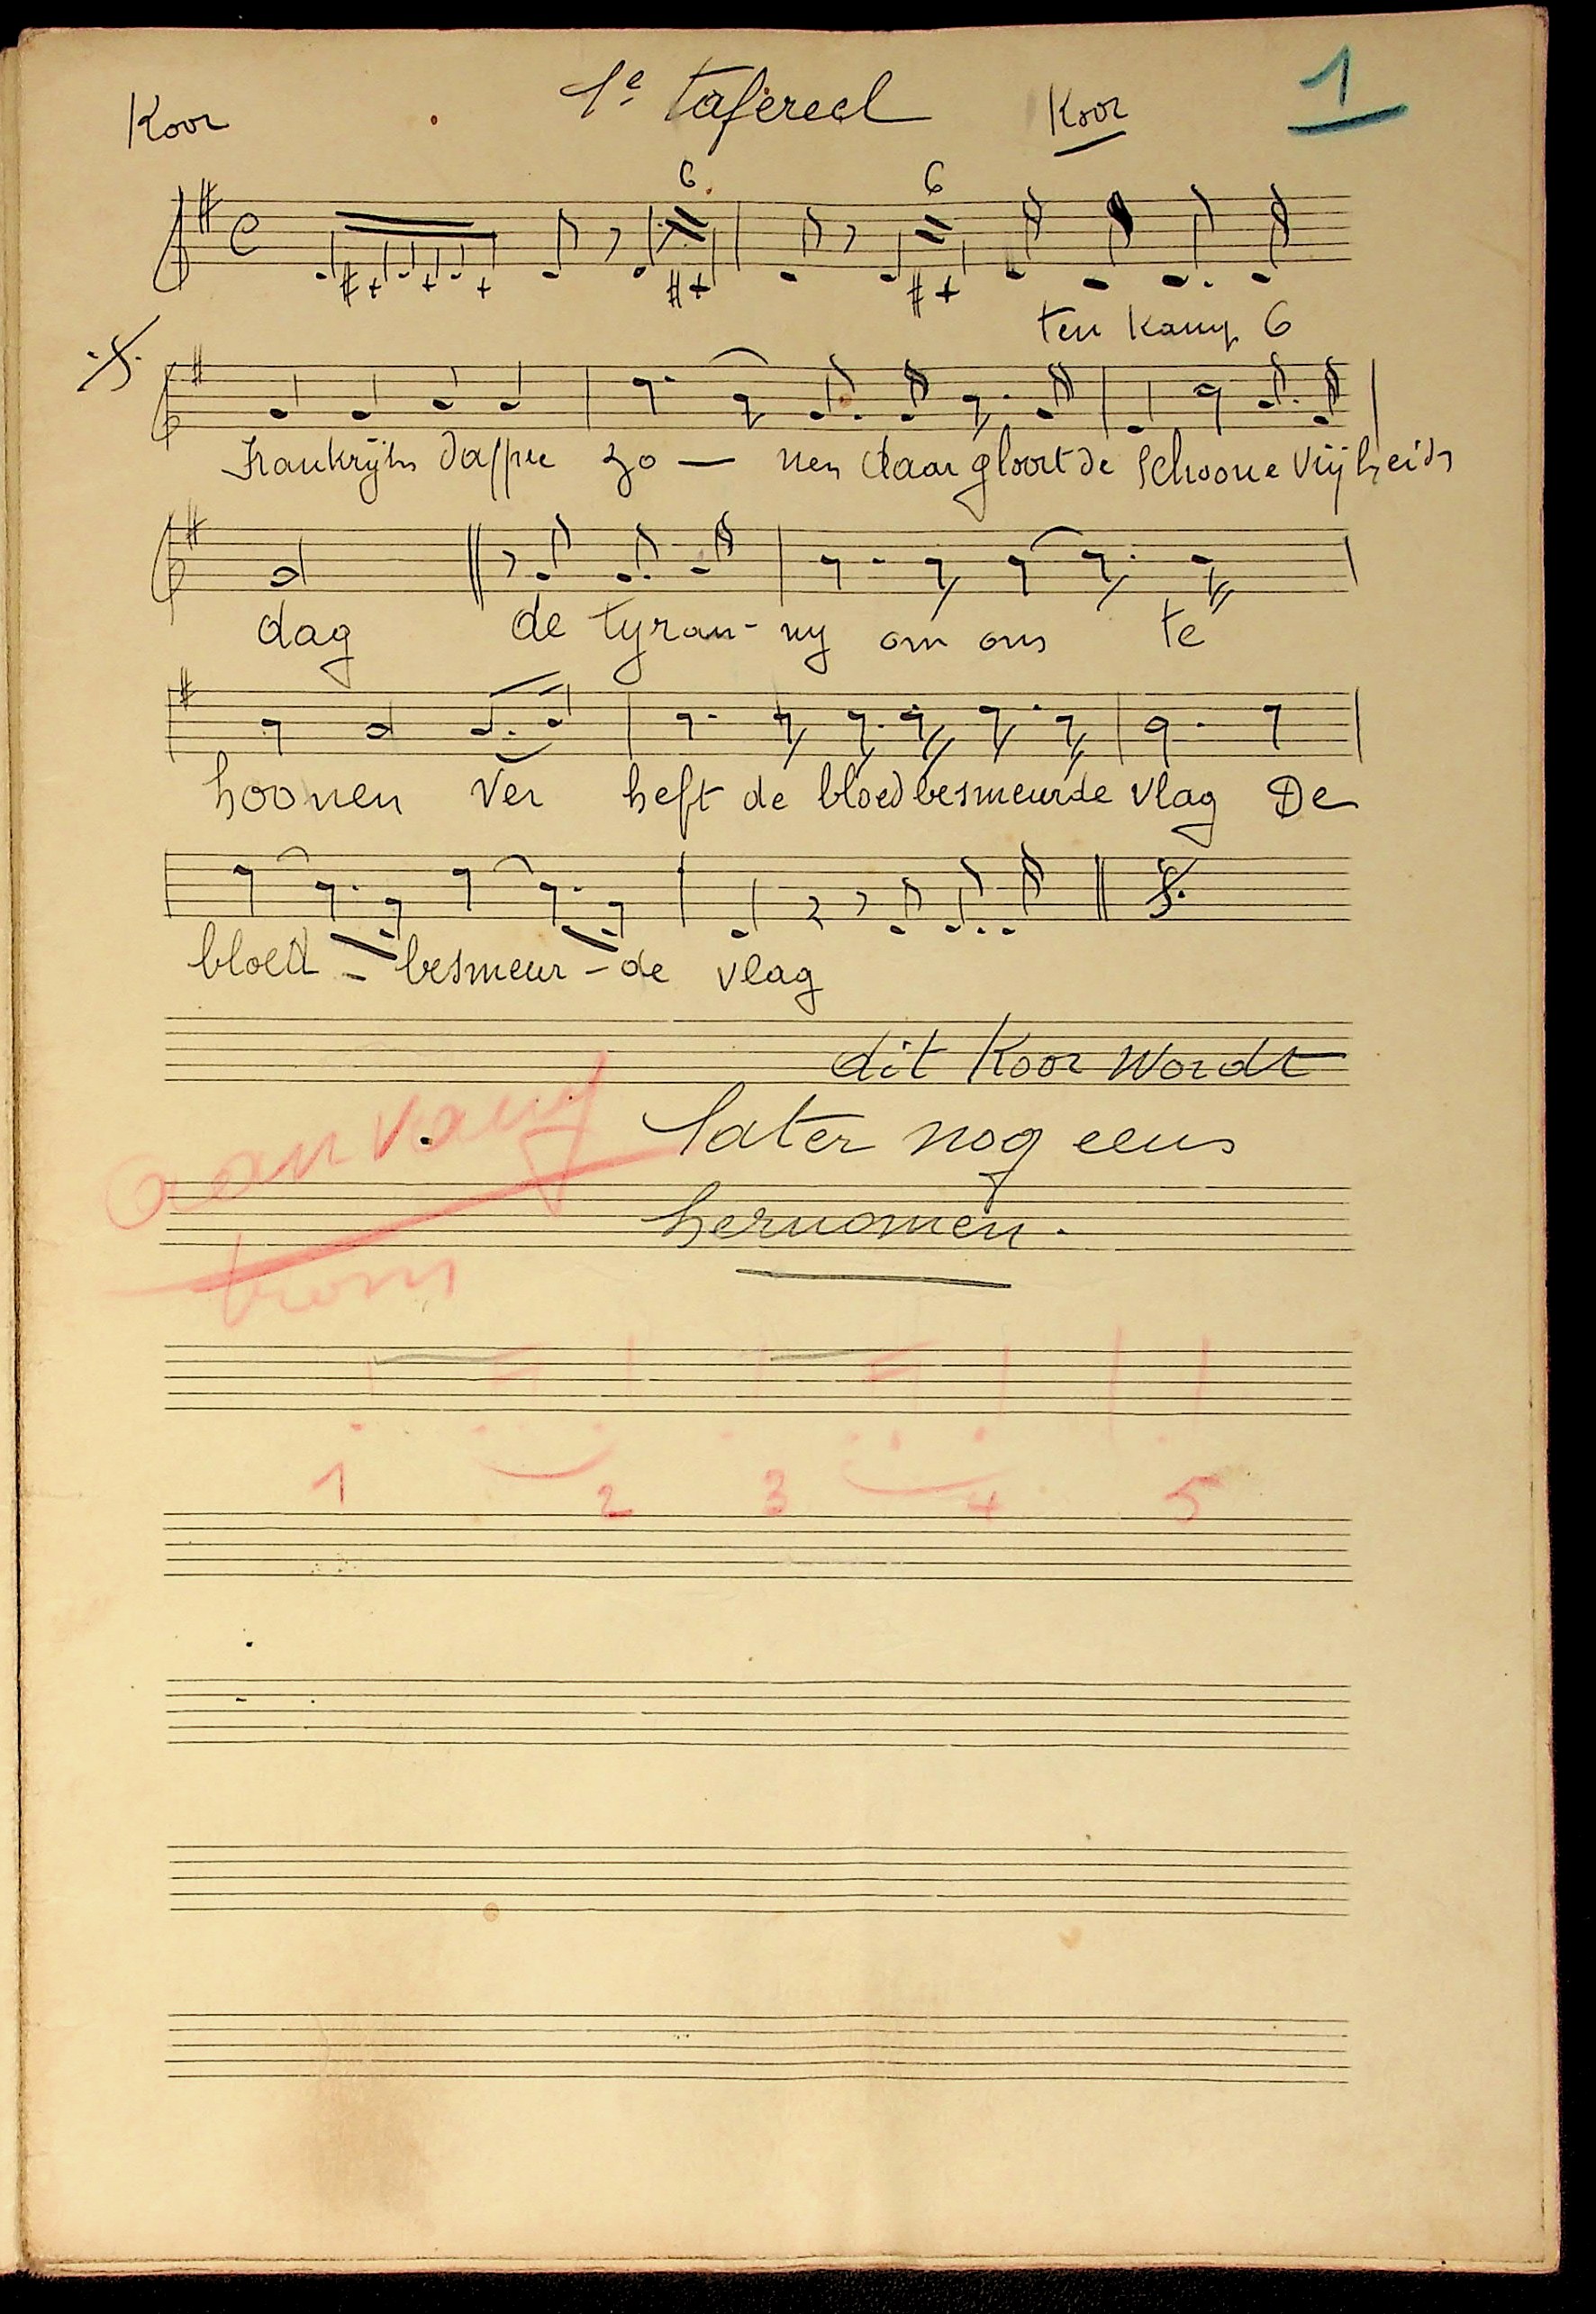 Koor 1e tafereel Koor 1
6 6
ten kamp 6
Frankrijks dappre zo — nen daar gloort de schoone vrijheids
dag de tyran - ny om ons te
hoonen ver heft de bloedbesmeurde vlag De
bloed - besmeur - de vlag
dit Koor Wordt
later nog eens
hernomen.
aanvang
trom
1 2 3 4 5